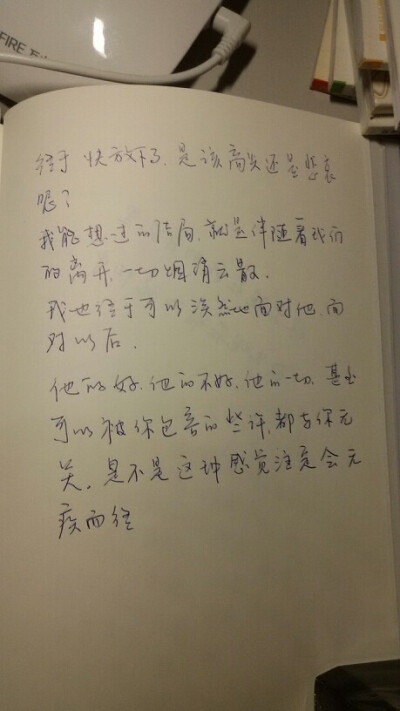 FIRE
终于 快放下了，是该高兴还是悲哀
呢？
我能想过的结局，就是伴随着我们
的离开，一切烟消云散。
我也终于可以淡然地面对他，面
对以后。
他的好，他的不好，他的一切，甚至
可以被你包容的些许，都与你无
关。是不是这种感觉注定会无
疾而终